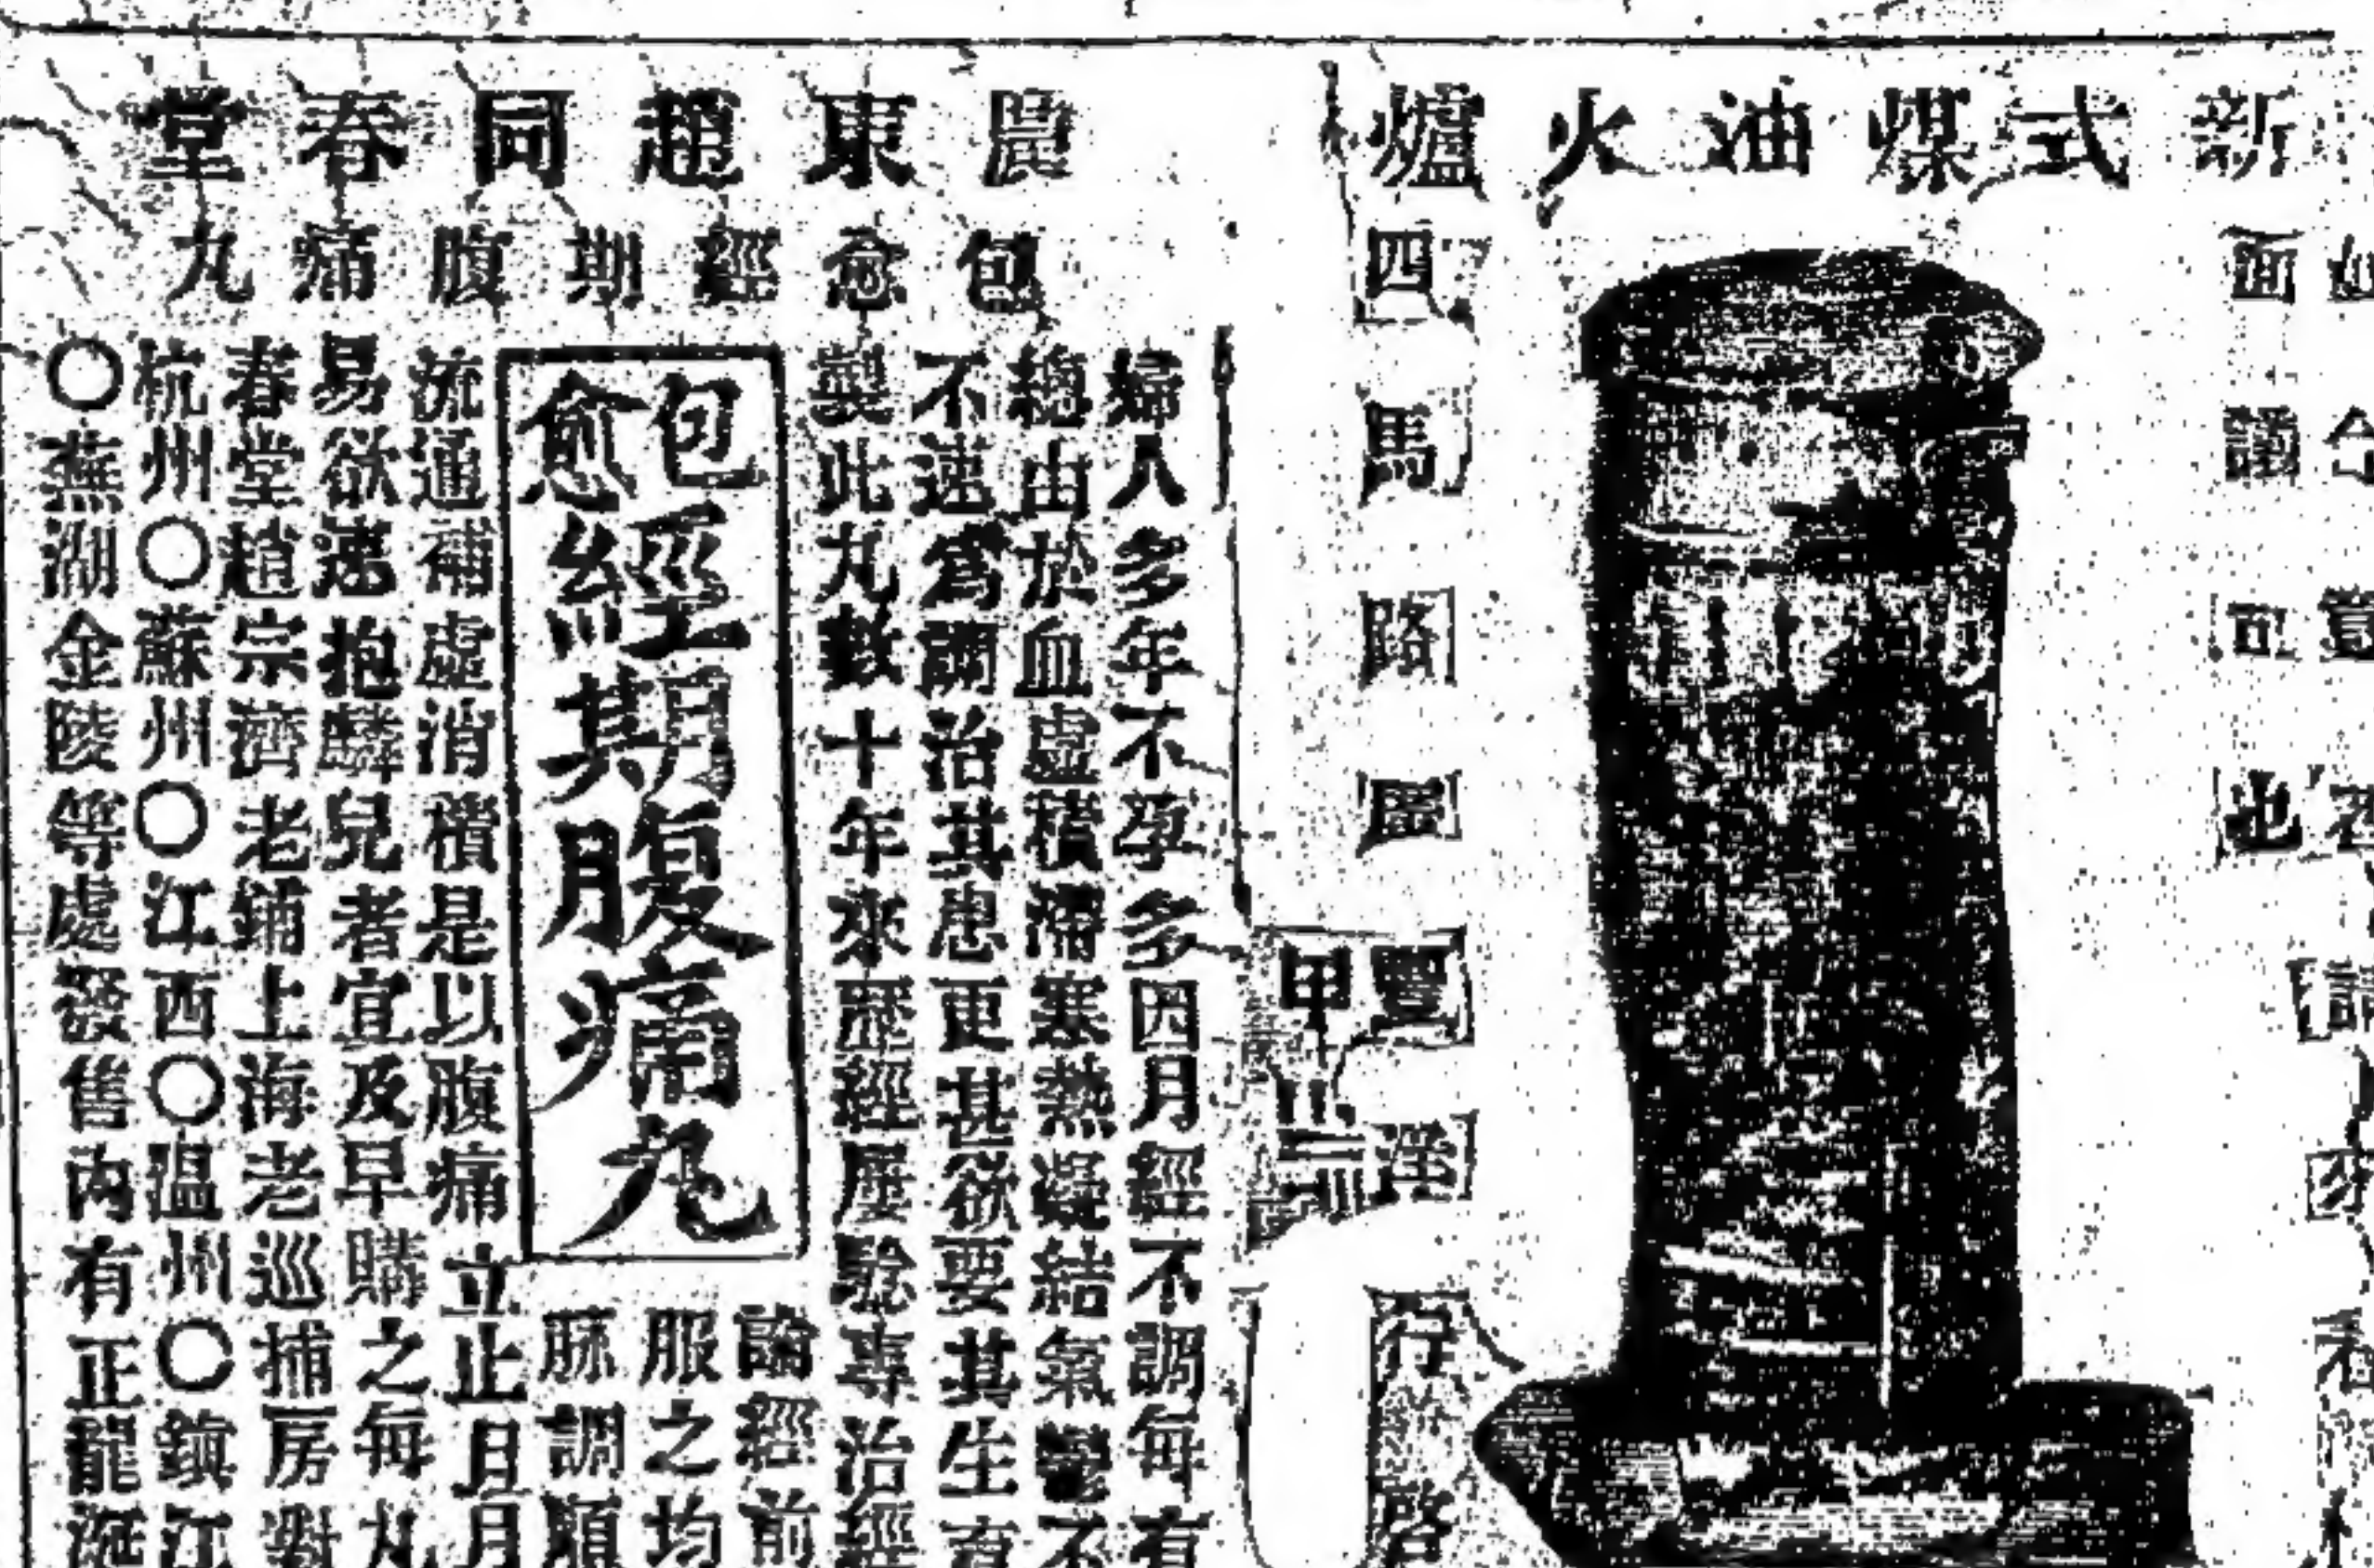 新式煤油火爐
面議可也
四馬路
行啓
東趙同春堂
包愈經期腹痛丸
婦人多年不孕多因月經不調每有
總由於血虛積滯寒熱凝結氣鬱不
不速為調治其患更甚欲要其生育
製此丸數十年來歷經屢驗專治經
包愈經期腹痛丸
論經前
服之均
脈調順
流通補虛消積是以腹痛立止且月
易欲速抱麟兒者宜及早購之每丸
春堂趙宗濟老鋪上海老巡捕房對
杭州〇蘇州〇江西〇温州〇鎮江
〇蕪湖金陵等處發售內有正龍涎